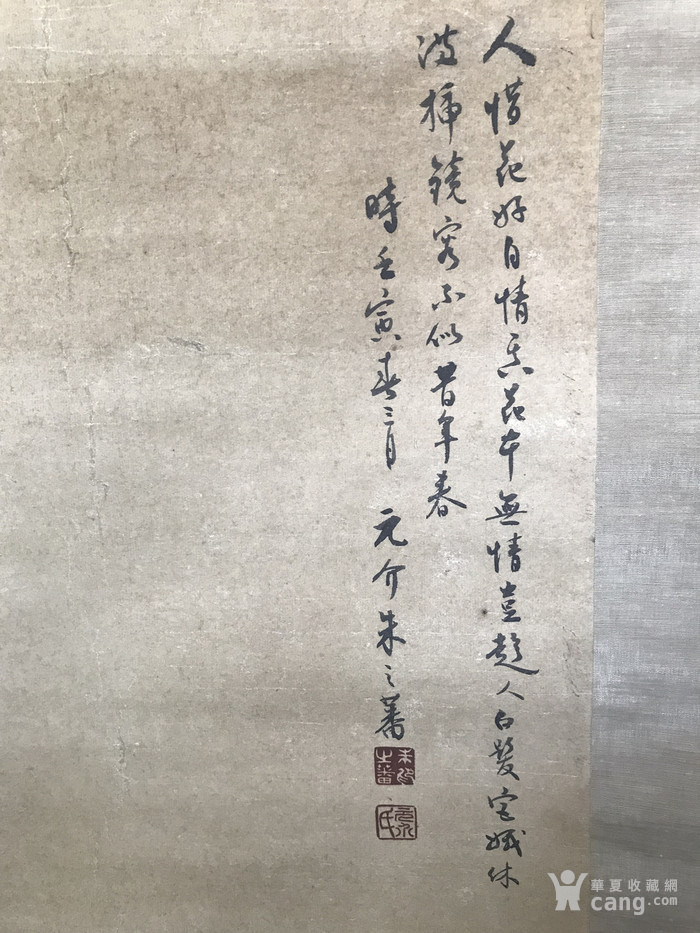 人惜花好自情花本無情豈趁人白髮休
满插鏡容不似昔年春
時壬寅春三月 元介朱之蕃
華夏收藏網
cang.com